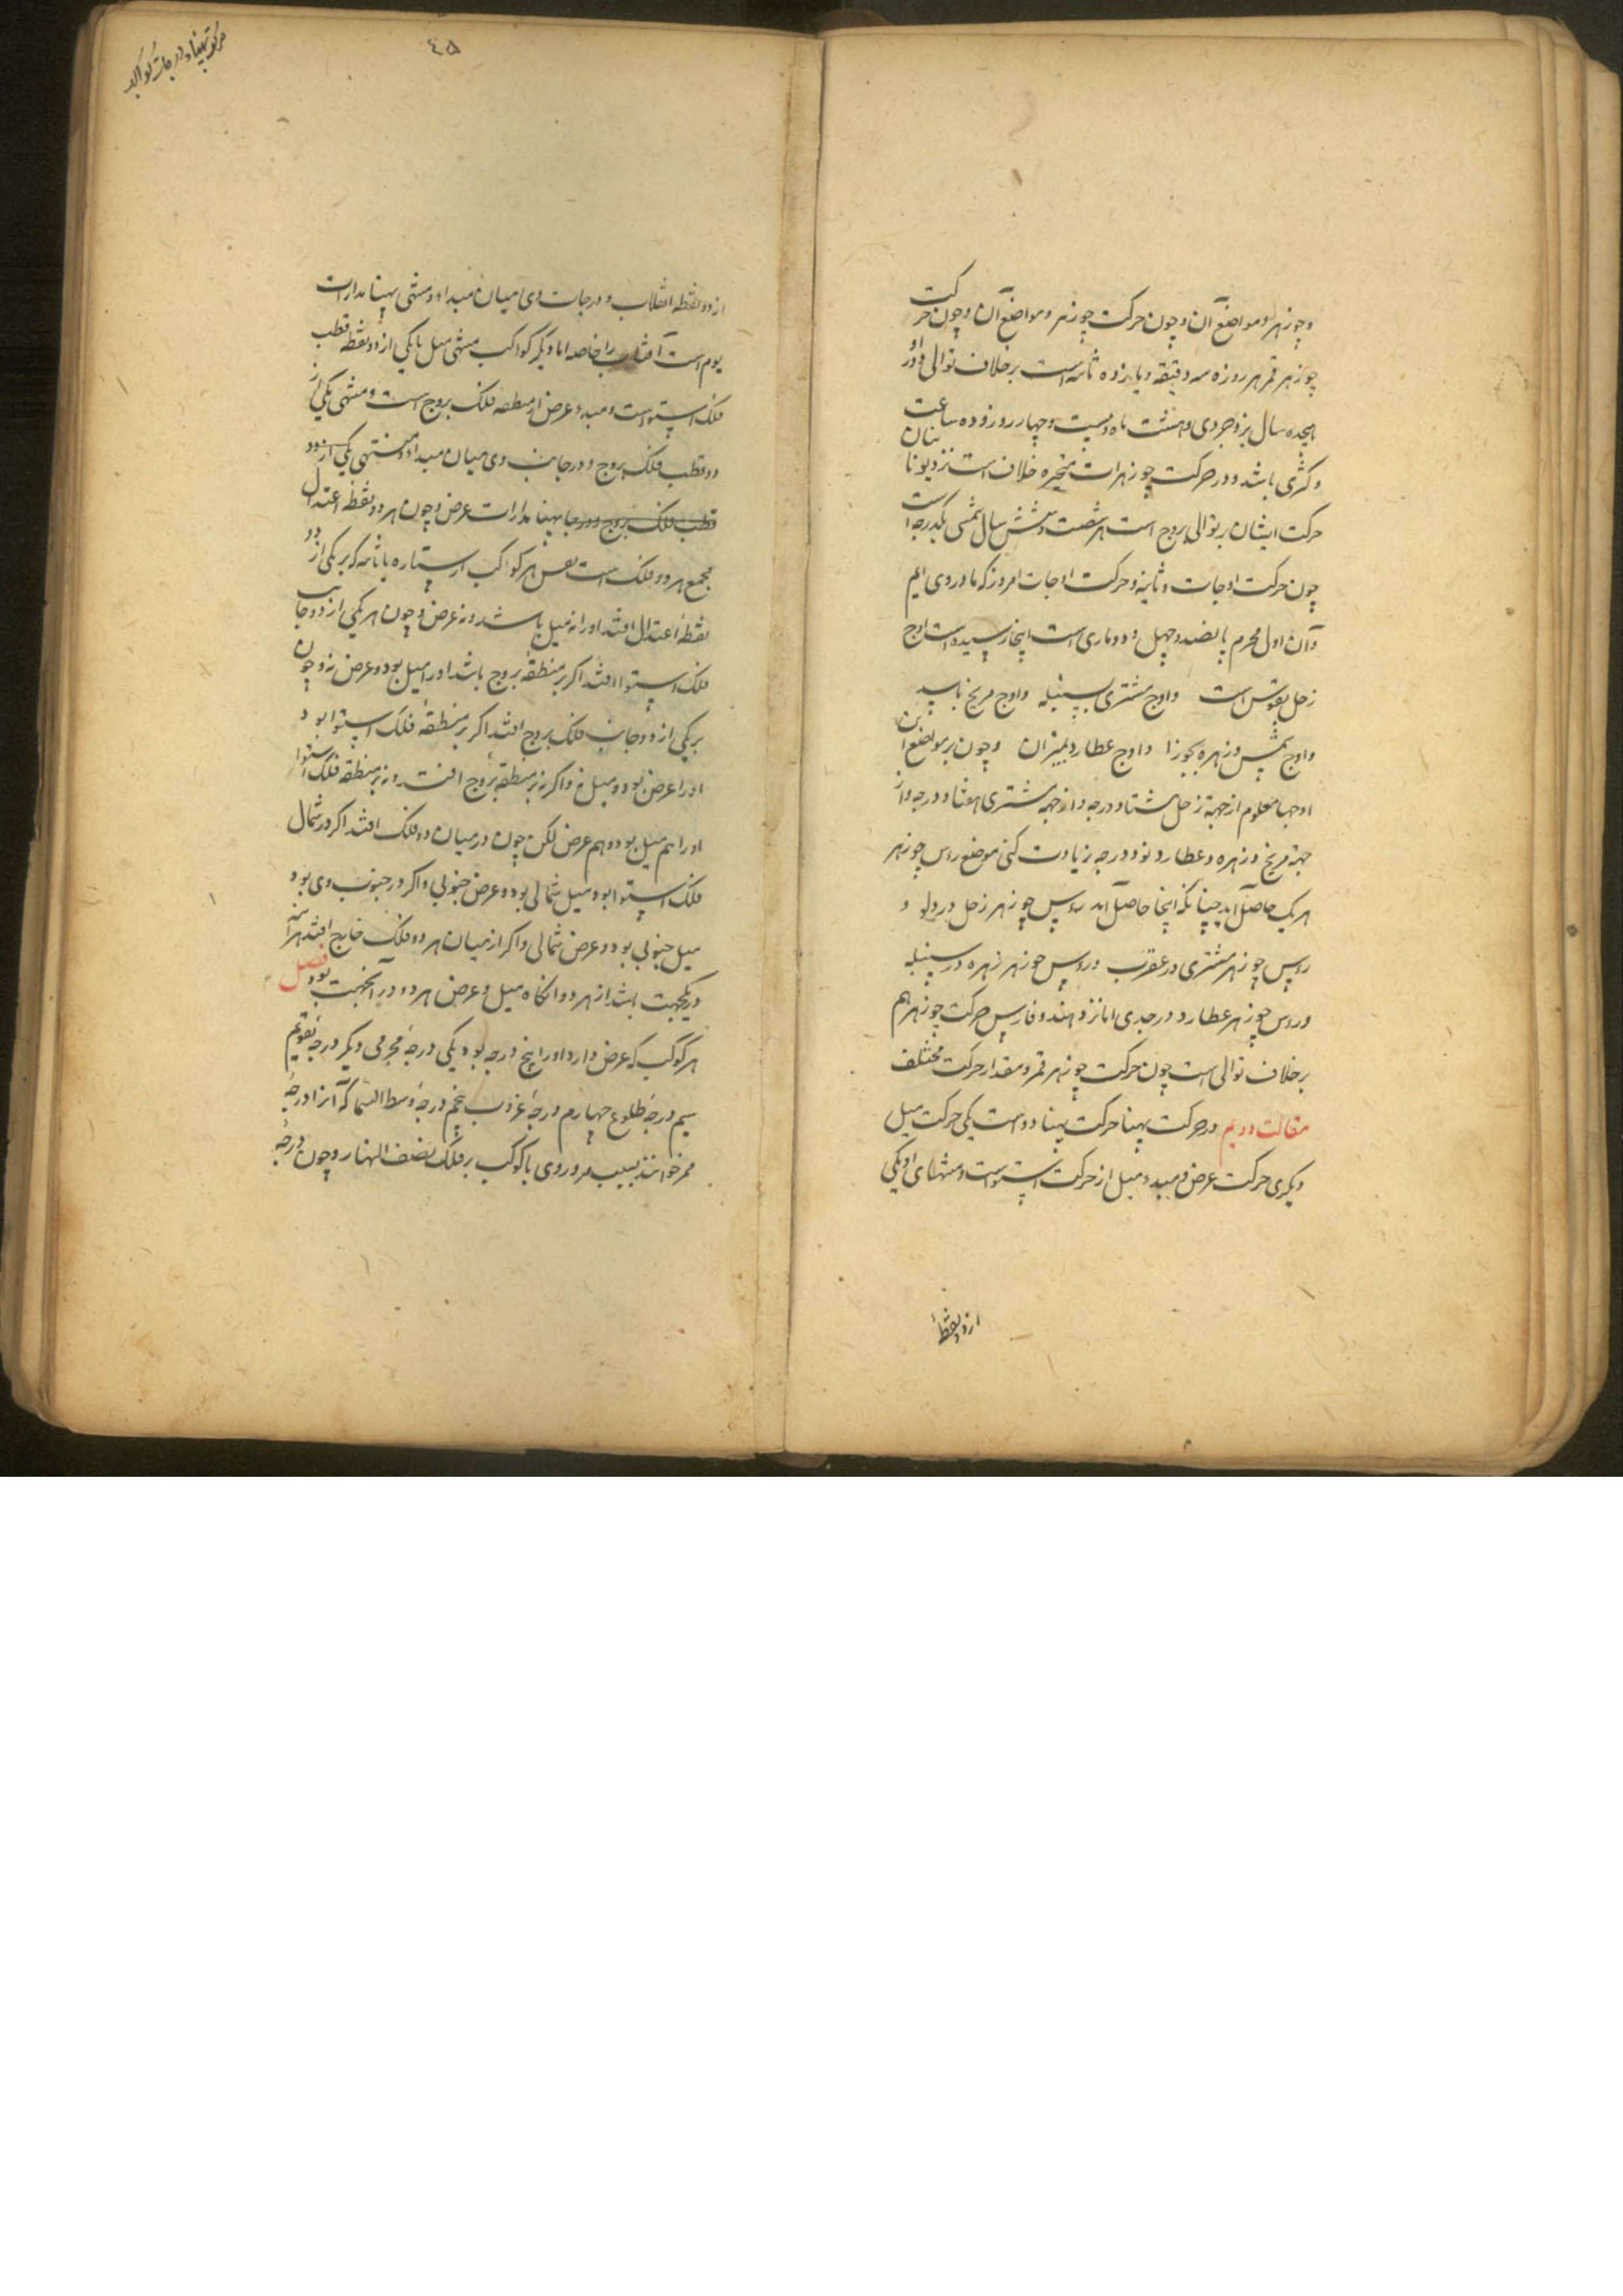 وجوزهر و مواضع آن و چون حرکت جوزهر و مواضع آن و چون حرکت
جوزهر قمر هر روزه سه دقیقه و یازده ثانیه است برخلاف توالی و دور او
هیجده سال یزدجردی و هشت ماه و بیست و چهار روز و ده ساعت
و کثری باشد و در حرکت جوزهرات متحیره خلاف است نزد یونانیان
حرکت ایشان بر توالی بروج است هر شصت و شش سال شمسی یکدرجه است
چون حرکت اوجات و ثابته و حرکت اوجات امروز که ما در وی ایم
و آن اول محرم پانصد و چهل و دو ماری است اینجا رسیده است اوج
زحل بقوس است و اوج مشتری بسنبله و اوج مریخ باسد
و اوج شمس و زهره بجوزا و اوج عطارد بمیزان و چون بر مواضع این
اوجها معلوم از جهة زحل هشتاد درجه و از جهة مشتری هفتاد درجه و از
جهة مریخ و زهره و عطارد نود درجه زیادت کنی موضع راس جوزهر
هر یک حاصل اید چنانکه اینجا حاصل اید راس جوزهر زحل در دلو و
راس جوزهر مشتری در عقرب و راس جوزهر زهره در سنبله
و راس جوزهر عطارد در جدی اما نزد هند و فارس حرکت جوزهر هم
برخلاف توالی است چون حرکت جوزهر قمر و مقدار حرکت مختلف
مقالت دویم در حرکت پهنا حرکت پهنا دو است یکی حرکت میل
دیگری حرکت عرض و مبدء میل از حرکت استواست و منتهای او یکی
از دو نقطهٔ
٤۵
از دو نقطه انقلاب و درجات وی میان مبداء و منتهی پهنا مدارات
یوم است آفتاب را خاصه اما دیگر کواکب منتهی میل تا یکی از دو نقطه قطب
فلک استواست و مبدء عرض از منطقه فلک بروج است و منتهی یکی از
دو قطب فلک بروج و درجات وی میان مبداء و منتهی یکی از دو
قطب فلک بروج و درجا پهنا مدارات عرض و چون هر دو نقطه اعتدال
مجمع هر دو فلک است پس هر کواکب از ستاره یا ثابته که بر یکی از دو
نقطهٔ اعتدال افتد او را نه میل باشد و نه عرض و چون هر یکی از دو جانب
فلک استوا افتد اگر بر منطقهٔ بروج باشد او را میل بود و عرض نه و چون
بر یکی از دو جانب فلک بروج افتد اگر بر منطقهٔ فلک استوا بود
او را عرض بود و میل نه و اگر نه بر منطقه بروج افتد و نه بر منطقه فلک استوا
او را هم میل بود و هم عرض لکن چون در میان دو فلک افتد اگر در شمال
فلک استوا بود میل شمالی بود و عرض جنوبی و اگر در جنوب وی بود
میل جنوبی بود و عرض شمالی و اگر از میان هر دو فلک خارج افتد هر آینه
در یکجهت باشد از هر دو انگاه میل و عرض هر دو در آنجهت بود فصل
هر کوکب که عرض دارد او را پنج درجه بود یکی درجهٔ مجرمی دیگر درجهٔ تقویم
سیم درجهٔ طلوع چهارم درجهٔ غروب پنجم درجهٔ وسط السماء که آنرا درجهٔ
ممر خوانند بسبب مرور وی با کوکب بر فلک نصف النهار و چون درجهٔ